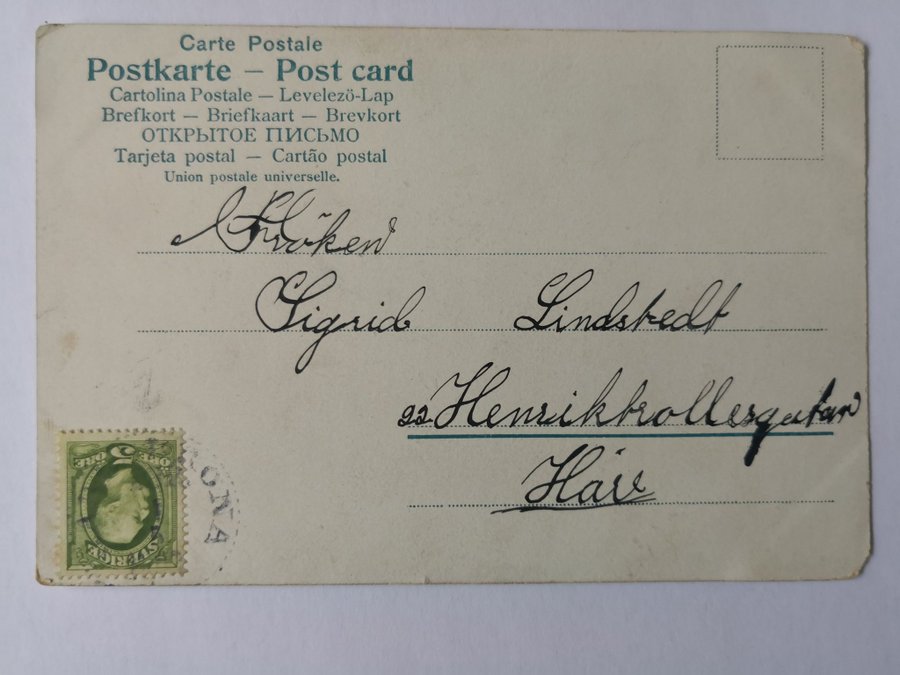 Carte Postale
Postkarte – Post card
Cartolina Postale — Levelezö-Lap
Brefkort — Briefkaart — Brevkort
ОТКРЫТОЕ ПИСЬМО
Tarjeta postal — Cartão postal
Union postale universelle.
Fröken
Sigrid Lindstedt
22 Henriktrollesgatan
Här
5
ÖRE ÖRE
SVERIGE
ONA